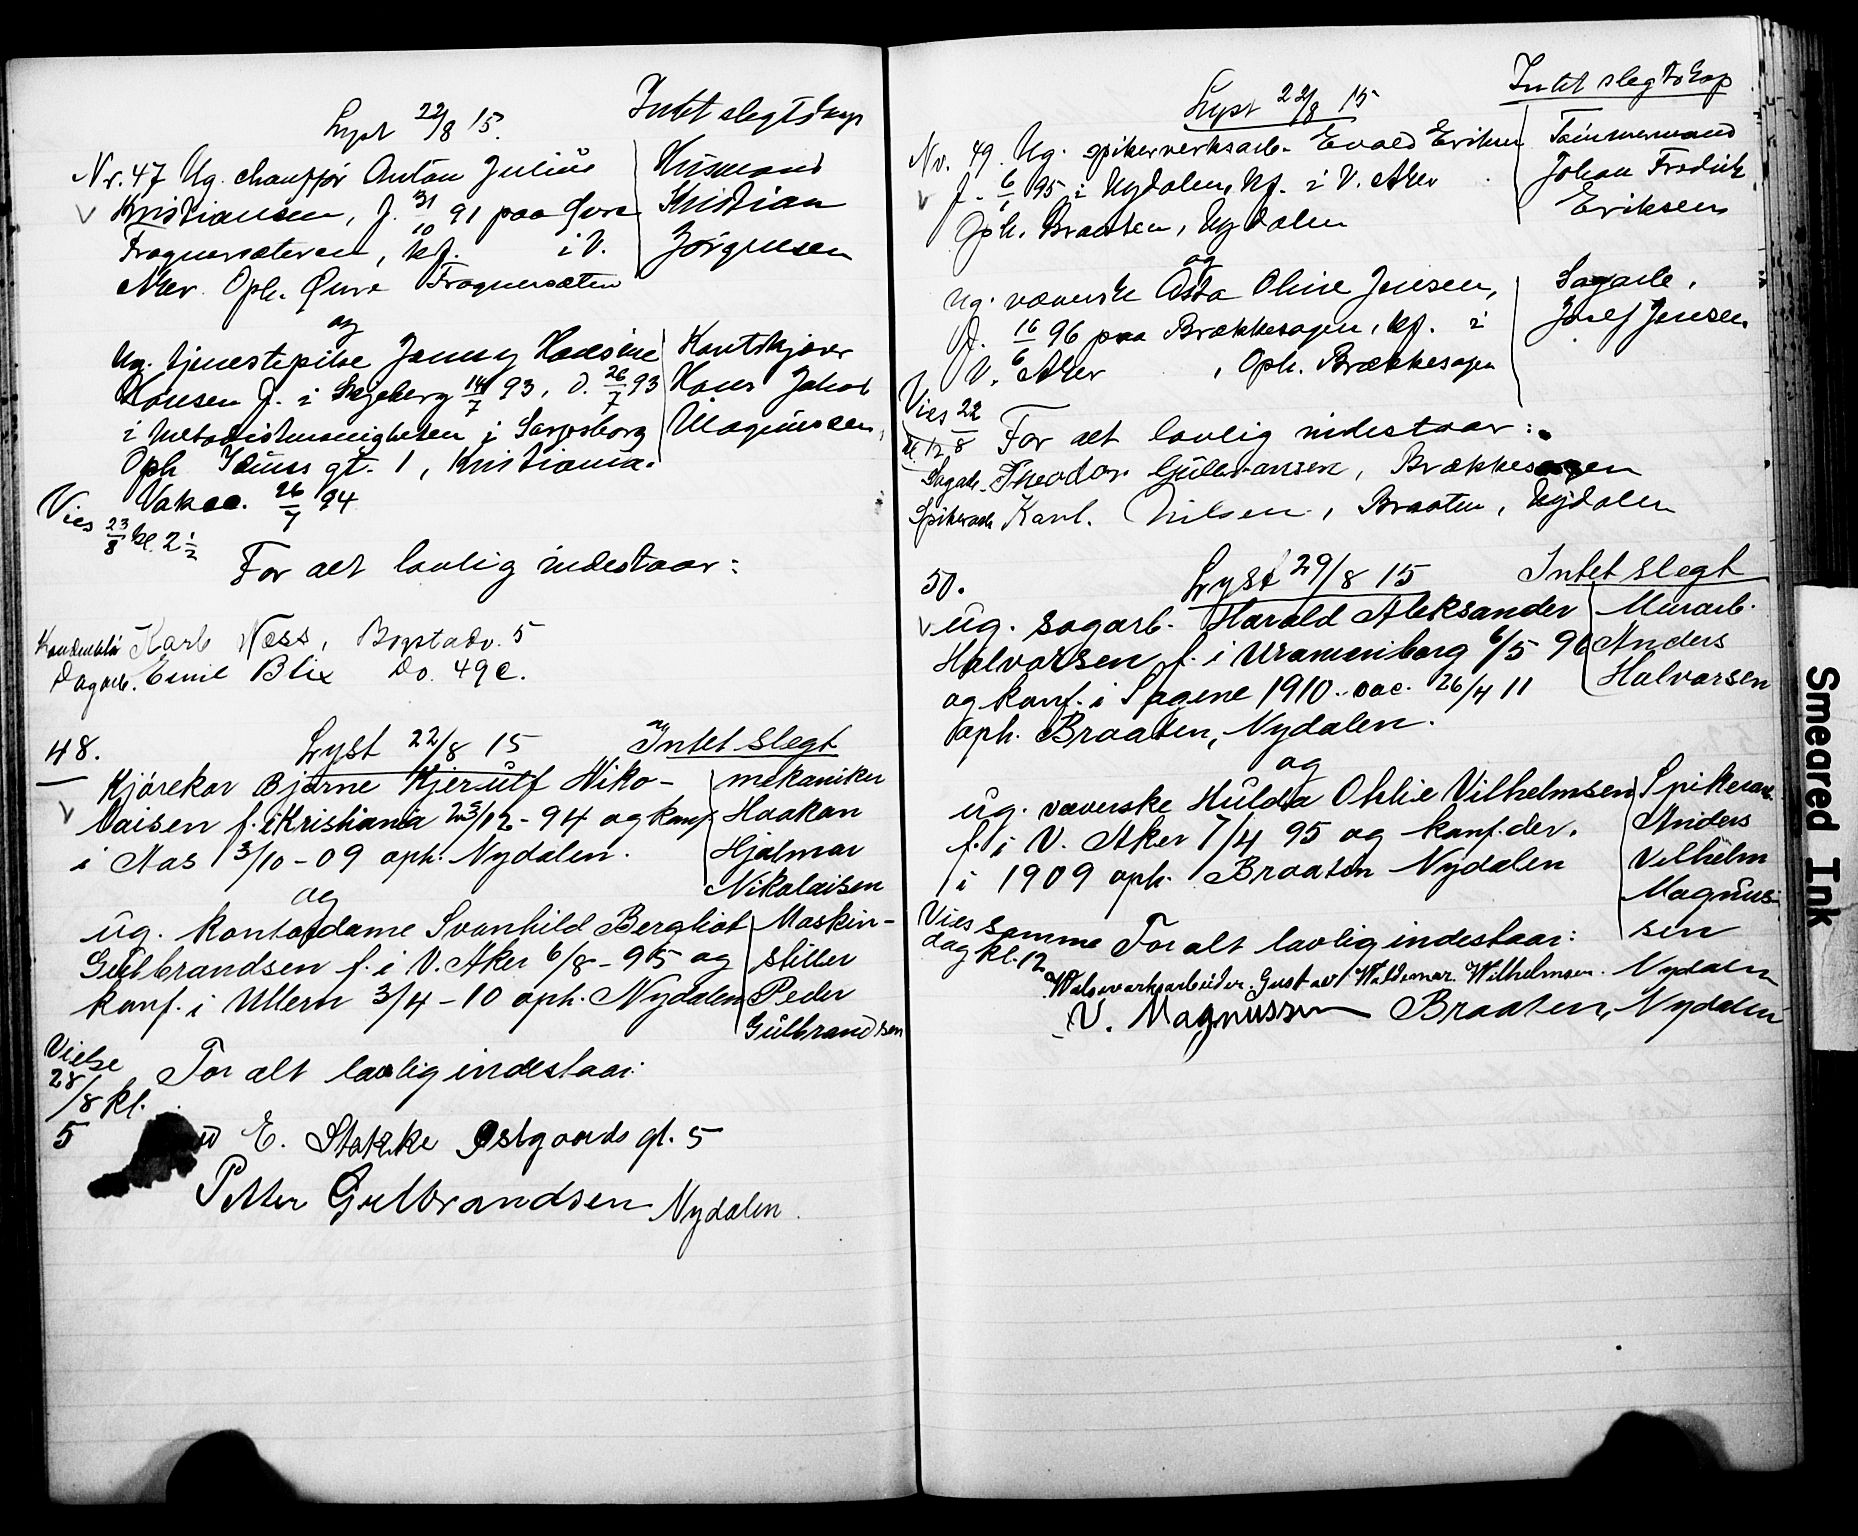 Lyst 22/8 15. Intet slegtskap
Nr. 47 Ug. chauffør Anton Julius
Kristiansen, f. 31/10 91 paa Øvre
Frognersæteren, kf. i V.
Aker. Oph. Øvre Frognersæten
Husmand
Kristian
Jørgensen
og
Ug. tjenestepike Jenny
Hansen f. i 14/7 93, d. 26/7 93
i Metodistmenigheten i Sarpsborg
Oph. gt. 1, Kristiania.
Vakcc. 26/7 94
Hans Jakob
Magnussen,
Vies 23/8 kl. 2 1/2
For alt lovlig indestaar:
Karl Næss, Bogstadv. 5
Dagarb. Emil Blix Do. 49 c.
48. Lyst 22/8 15 Intet slegt
Kjørekar Bjarne Kjerulf Niko-
laisen f. i Kristiania 23/12-94 og konf.
i Aas 3/10-09 oph. Nydalen.
mekaniker
Haakon
Hjalmar
Nikolaisen
og
ug. kontordame Svanhild Bergliot
Gulbrandsen f. i V. Aker 6/8-95 og
konf. i Ullern 3/4-10 oph. Nydalen
Maskin-
stiller
Peder
Gulbrandsen
Vielse
28/8 kl.
5
For alt lovlig indestaar:
E. Østgaards gt. 5
Petter Gulbrandsen Nydalen.
Lyst 22/8 15 Intet slegtskap
Nr. 49. Ug. spikerverksarb. Evald Eriksen
f. 6/1 95 i Nydalen, kf. i V. Aker
Oph. Braaten, Nydalen
Tømmermand
Johan Fredrik
Eriksen
og
Ug. væverske Asta Oline Jensen,
f. 16/6 96 paa Brækkesagen, kf. i
V. Aker, Oph. Brækkesagen
Sagarb.
Josef Jensen
Vies 22/8
kl. 12
For alt lovlig indestaar:
Sagarb. Theodor Gulbransen, Brækkesagen
Spikerarb. Karl Nilsen, Braaten, Nydalen
50. Lyst 29/8 15 Intet slegt
ug. sagarb. Harald Aleksander
Halvorsen f. i Uranienborg 6/5 96
og konf. i Sagene 1910. vac. 26/4 11
oph. Braaten, Nydalen.
Murarb.
Anders
Halvorsen
og
ug. væverske Hulda Othlie Vilhelmsen
f. i V. Aker 7/4 95 og konf. der.
i 1909 oph. Braaten Nydalen
Spikerarb.
Anders
Vilhelm
Magnus-
sen
Vies samme
dag kl. 12
For alt lovlig indestaar:
Valseverksarbeider. Gustav Waldemar Wilhelmsen. Nydalen
V. Magnussen Braaten, Nydalen
Smeared Ink